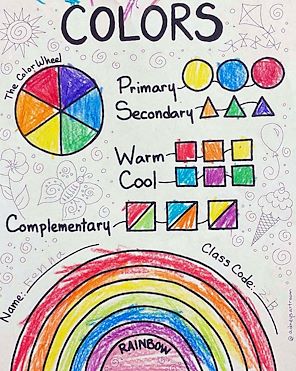 COLORS
The Color Wheel
Primary
Secondary
Warm
Cool
Complementary
Name:
Class Code: 2B
RAINBOW